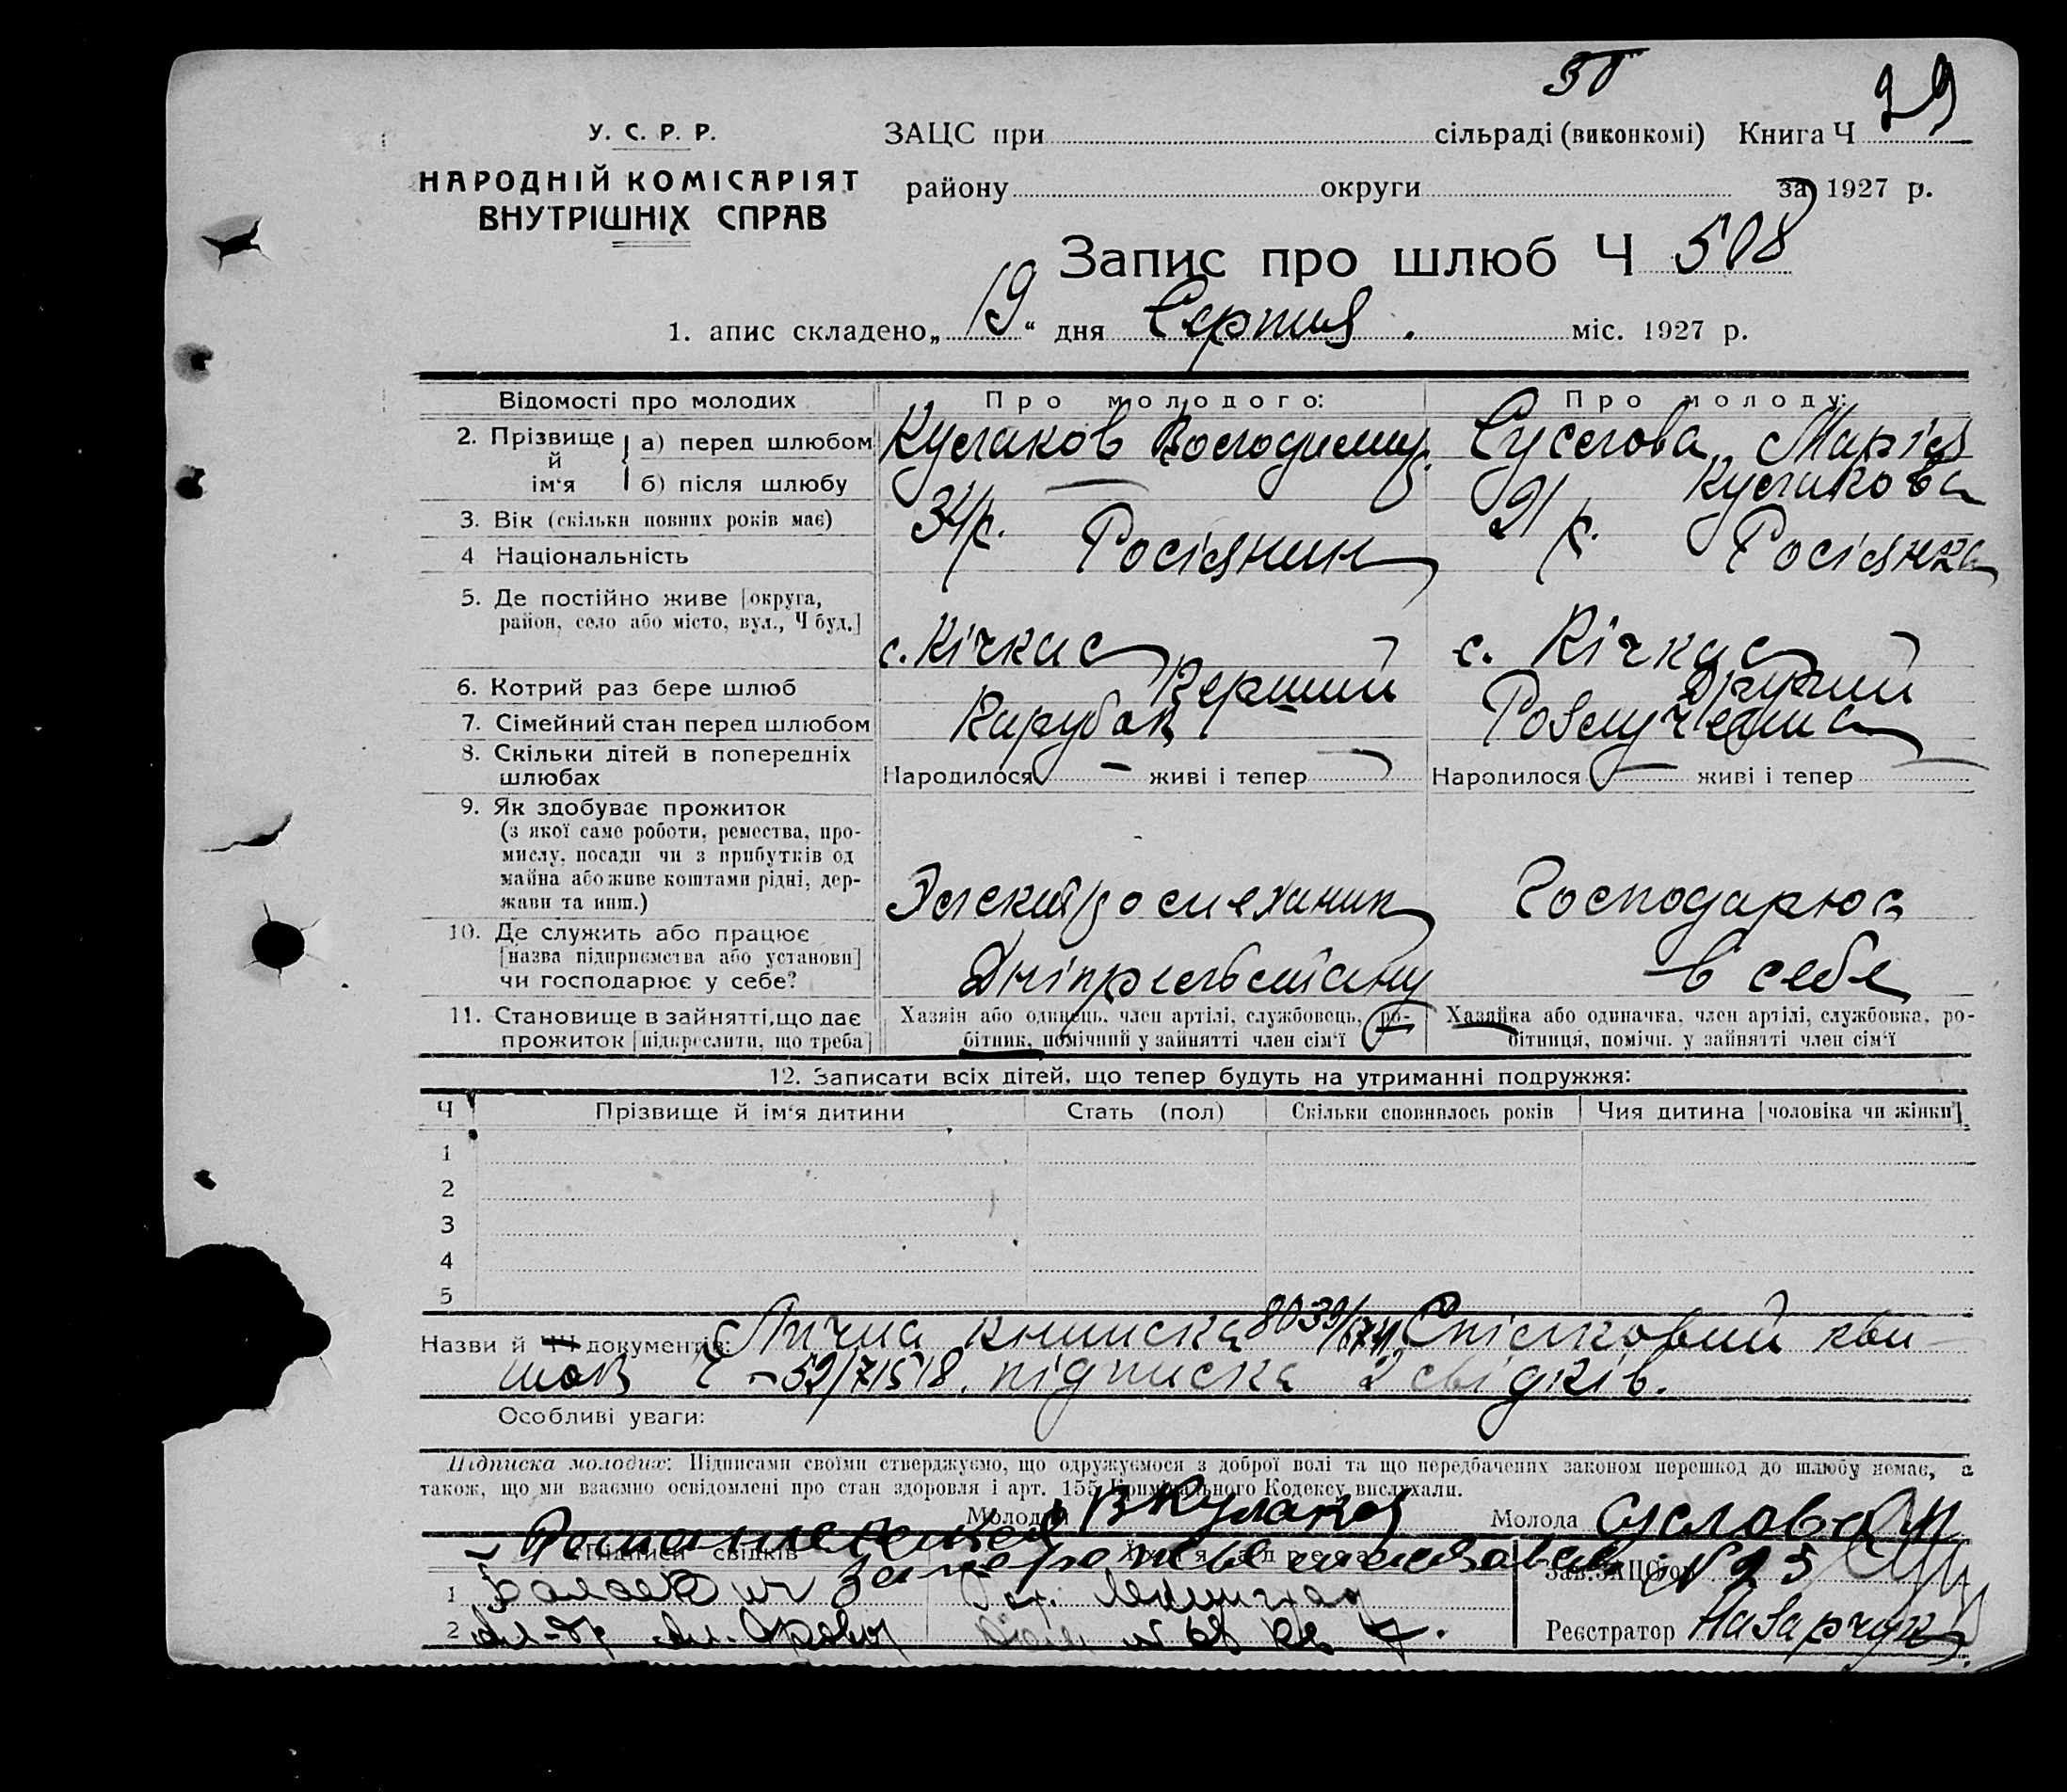 30
У. С. Р. Р.
НАРОДНІЙ КОМІСАРІЯТ
ВНУТРІШНІХ СПРАВ
ЗАЦС при сільраді (виконкомі) Книга Ч 29
району округи за 1927 р.
Запис про шлюб Ч 508
1. апис складено „19“ дня Серпня міс. 1927 р.
Відомості про молодих Про молодого: Про молоду:
2. Прізвище й ім‘я а) перед шлюбом Кулаков Володимир. Суслова Марія
б) після шлюбу — Кулакова
3. Вік (скільки повних років має) 34 р. 21 р.
4 Національність Росіянин Росіянка
5. Де постійно живе [округа,
район, село або місто, вул., Ч буд.] с. Кічкас с. Кічкас
6. Котрий раз бере шлюб Перший Другий
7. Сімейний стан перед шлюбом Парубок Розлучена
8. Скільки дітей в попередніх
шлюбах Народилося — живі і тепер Народилося — живі і тепер —
9. Як здобуває прожиток
(з якої саме роботи, ремества, про-
мислу, посади чи з прибутків од
майна або живе коштами рідні, дер-
жави та инш.) Електромеханик Господарює
10. Де служить або працює
[назва підприємства або установи]
чи господарює у себе? Дніпрельстану в себе
11. Становище в зайнятті, що дає
прожиток [підкреслити, що треба]
Хазяїн або одинець, член артілі, службовець, ро-
бітник, помічний у зайнятті член сім‘ї
Хазяйка або одиначка, член артілі, службовка, ро-
бітниця, помічн. у зайнятті член сім‘ї
12. Записати всіх дітей, що тепер будуть на утриманні подружжя:
Ч Прізвище й ім‘я дитини Стать (пол) Скільки сповнилось років Чия дитина [чоловіка чи жінки]
1
2
3
4
5
Назви й ЧЧ документів: Лична книжка 8039/ Спілковий кви-
ток Ч-52/71518. підписка 2 свідків.
Особливі уваги:
Підписка молодих: Підписами своїми стверджуємо, що одружуємося з доброї волі та що передбачених законом перешкод до шлюбу немає, а
також, що ми взаємно освідомлені про стан здоровля і арт. 155 Кримінального Кодексу вислухали.
Молодий ВКулаков Молода Суслова М
Підписи свідків Їхня адреса Зав. ЗАЦС‘ом
№ 25
1
2
Реєстратор Назарчук